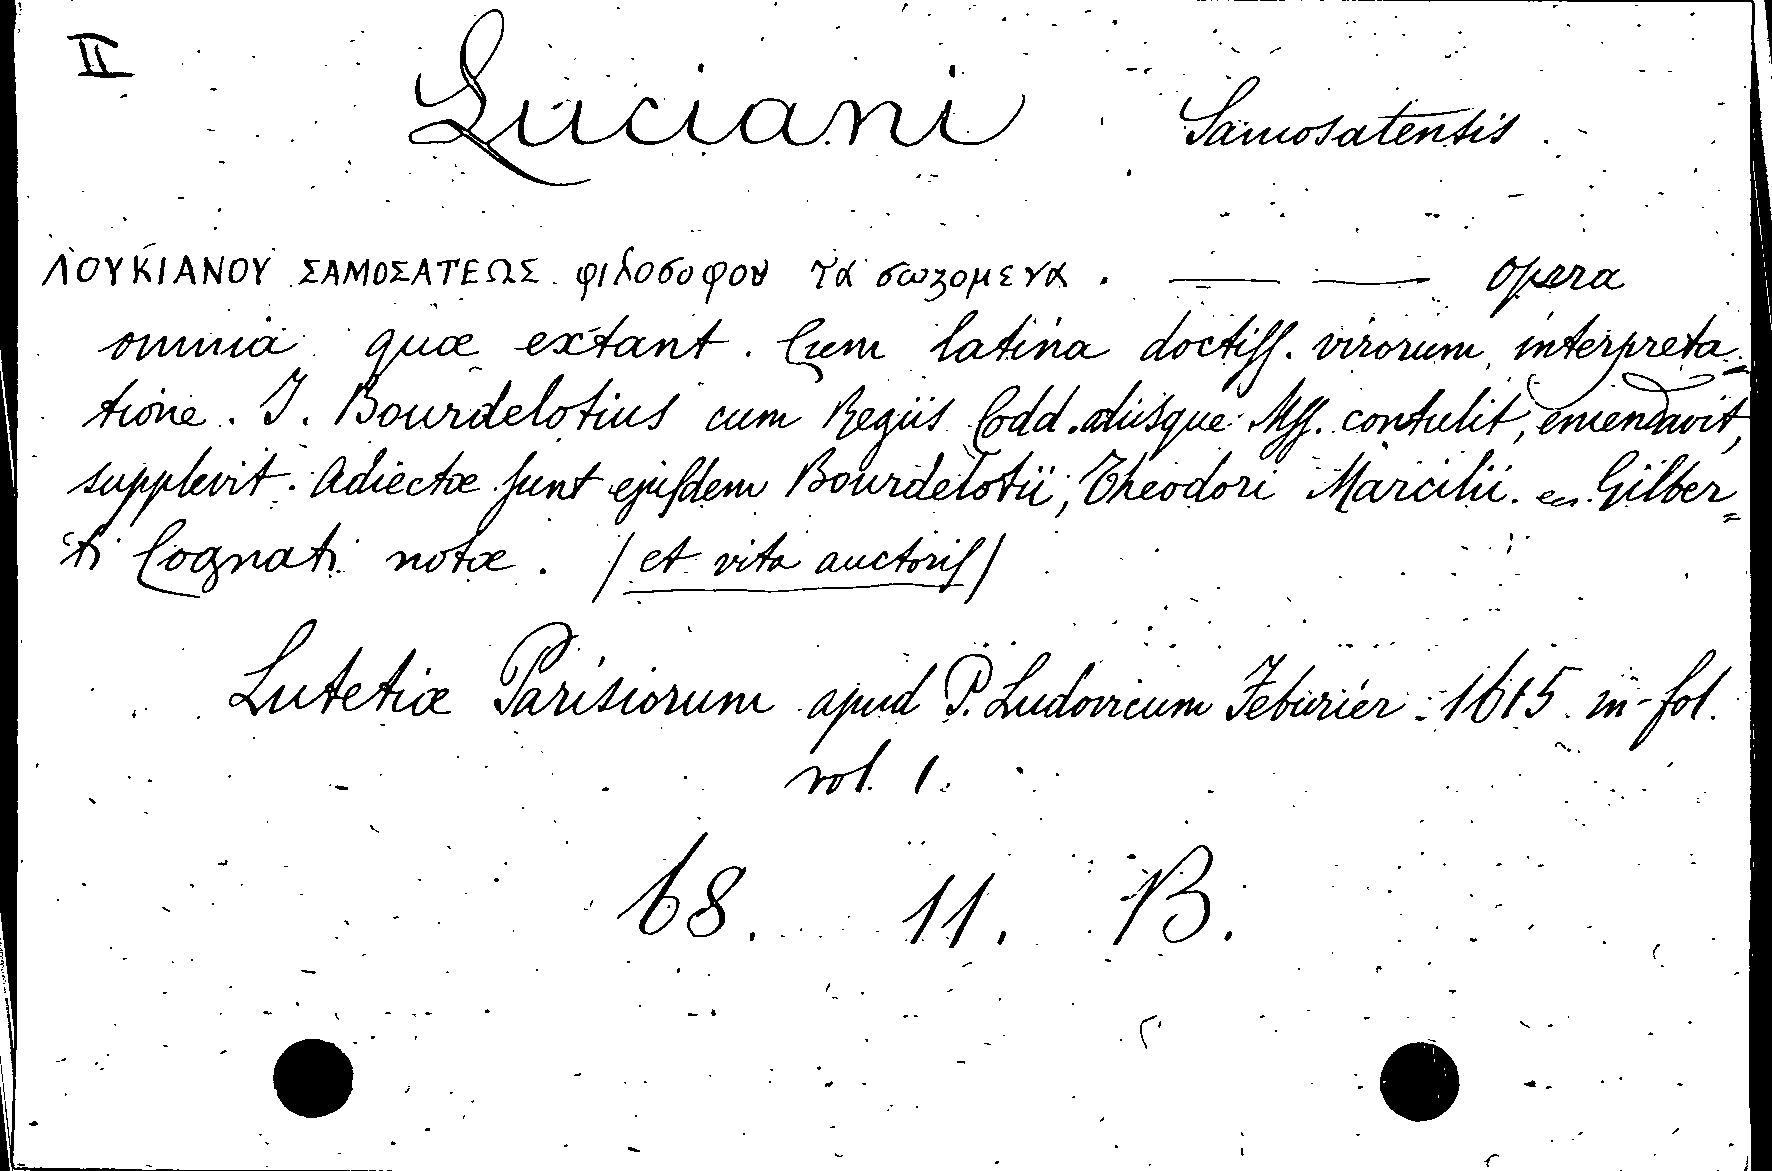 II
Luciani Samosatensis.
ΛΟΥΚΙΑΝΟΥ ΣΑΜΟΣΑΤΕΩΣ φιλοσοφου τα σωζομενα. — — opera
omnia quæ extant. Cum latina doctiss. virorum interpreta=
tione. J. Bourdelotius cum Regiis Codd. aliisque Mss. contulit, emendavit,
supplevit. Adiectæ sunt ejusdem Bourdelotii, Theodori Marcilii. en Gilber=
ti Cognati notæ. (et vita auctoris)
Lutetiæ Parisiorum apud P. Ludovicum Feburier. 1615 in-fol.
vol. 1.
68. 11. B.